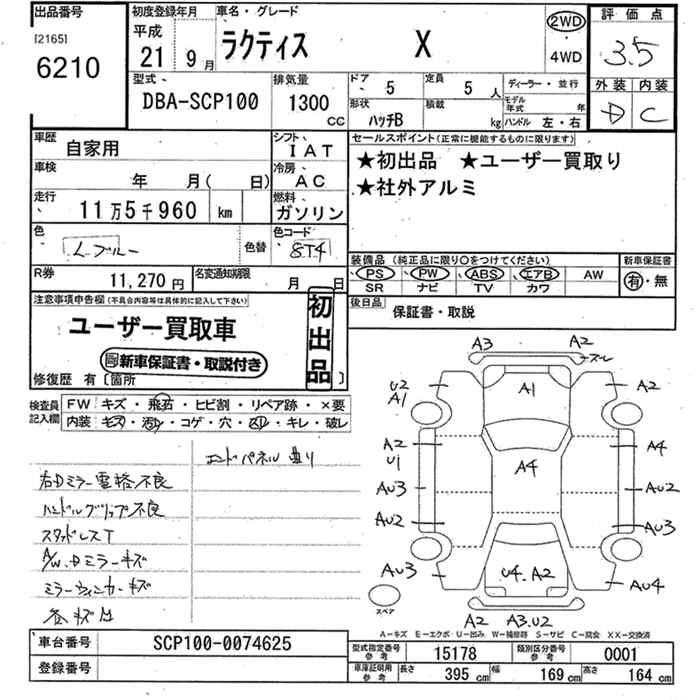 出品番号 初度登録年月 車名・グレード 評価点
[2165] 平成 2WD
6210 21年 9月 ラクティス X 4WD 3.5
型式 排気量 ドア 5 定員 5人 ディーラー・並行 外装 内装
DBA-SCP100 1300CC 形状 ハッチB 積載 kg モデル年式 年 ハンドル 左・右 D C
車歴 自家用 シフト IAT セールスポイント(正常に機能するものに限ります)
車検 年 月( 日) 冷房 AC ★初出品 ★ユーザー買取り
走行 11万5千960 km 燃料 ガソリン ★社外アルミ
色 L.ブルー 色替 色コード 8T4
装備品(純正品に限り○をつけてください) 新車保証書
R券 11,270円 名変通知期限 月 日 PS PW ABS エアB AW 有・無
SR ナビ TV カワ
注意事項申告欄(不具合内容等は具体的に記入して下さい) 初出品 後日品 保証書・取説
ユーザー買取車
新車保証書・取説付き
修復歴 有〔箇所 〕
検査員記入欄 FW キズ・飛石・ヒビ割・リペア跡・×要
内装 キズ・汚れ・コゲ・穴・スレ・キレ・破レ
エンドパネル曲り
右Dミラー電格不良
ハンドルグリップ不良
スタッドレスT
A/W.Dミラーキズ
ミラーウィンカーキズ
各キズ凹
A3 A2 スレ
U2 A1 A1 A2
A2 U1 A4 A4
AU3 AU2
AU2 AU3
AU3 U4.A2 AU4
スペア A2 A3.U2
A-キズ E-エクボ U-凹み W-補修跡 S-サビ C-腐食 XX-交換済
車台番号 SCP100-0074625 型式指定番号 参考 15178 類別区分番号 参考 0001
登録番号 車庫証明用 参考 長さ 395 cm 幅 169 cm 高さ 164 cm